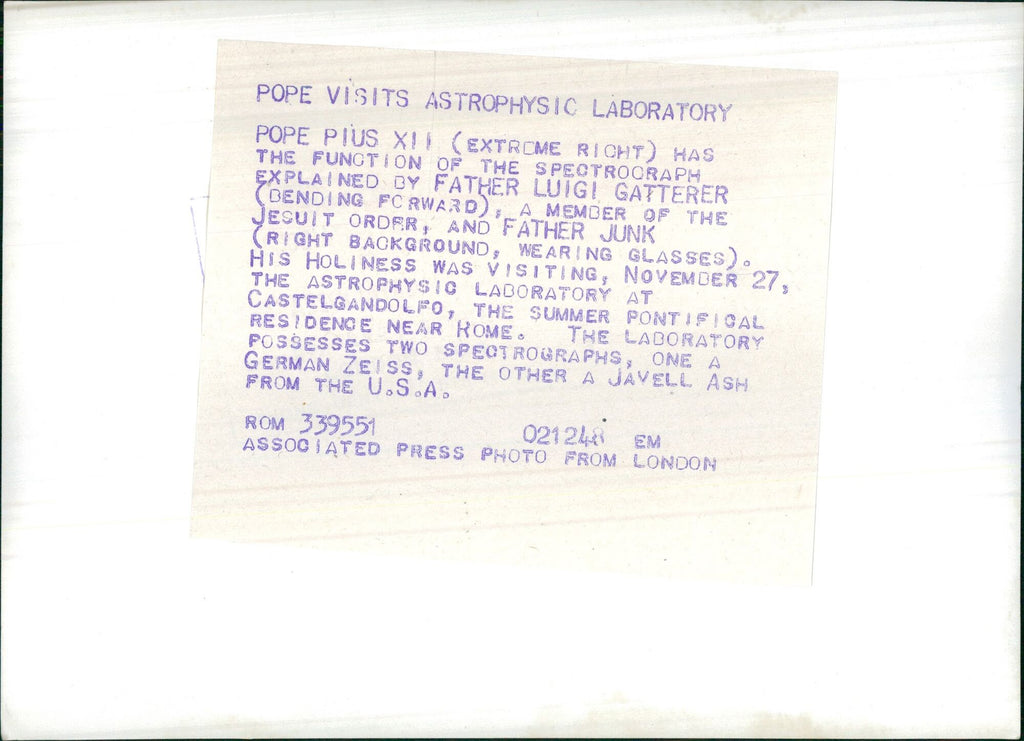 POPE VISITS ASTROPHYSIC LABORATORY
POPE PIUS XII (EXTREME RIGHT) HAS
THE FUNCTION OF THE SPECTROGRAPH
EXPLAINED BY FATHER LUIGI GATTERER
(BENDING FORWARD), A MEMBER OF THE
JESUIT ORDER, AND FATHER JUNK
(RIGHT BACKGROUND, WEARING GLASSES).
HIS HOLINESS WAS VISITING, NOVEMBER 27,
THE ASTROPHYSIC LABORATORY AT
CASTELGANDOLFO, THE SUMMER PONTIFICAL
RESIDENCE NEAR ROME. THE LABORATORY
POSSESSES TWO SPECTROGRAPHS, ONE A
GERMAN ZEISS, THE OTHER A JAVELL ASH
FROM THE U.S.A.
ROM 339551 021248 EM
ASSOCIATED PRESS PHOTO FROM LONDON